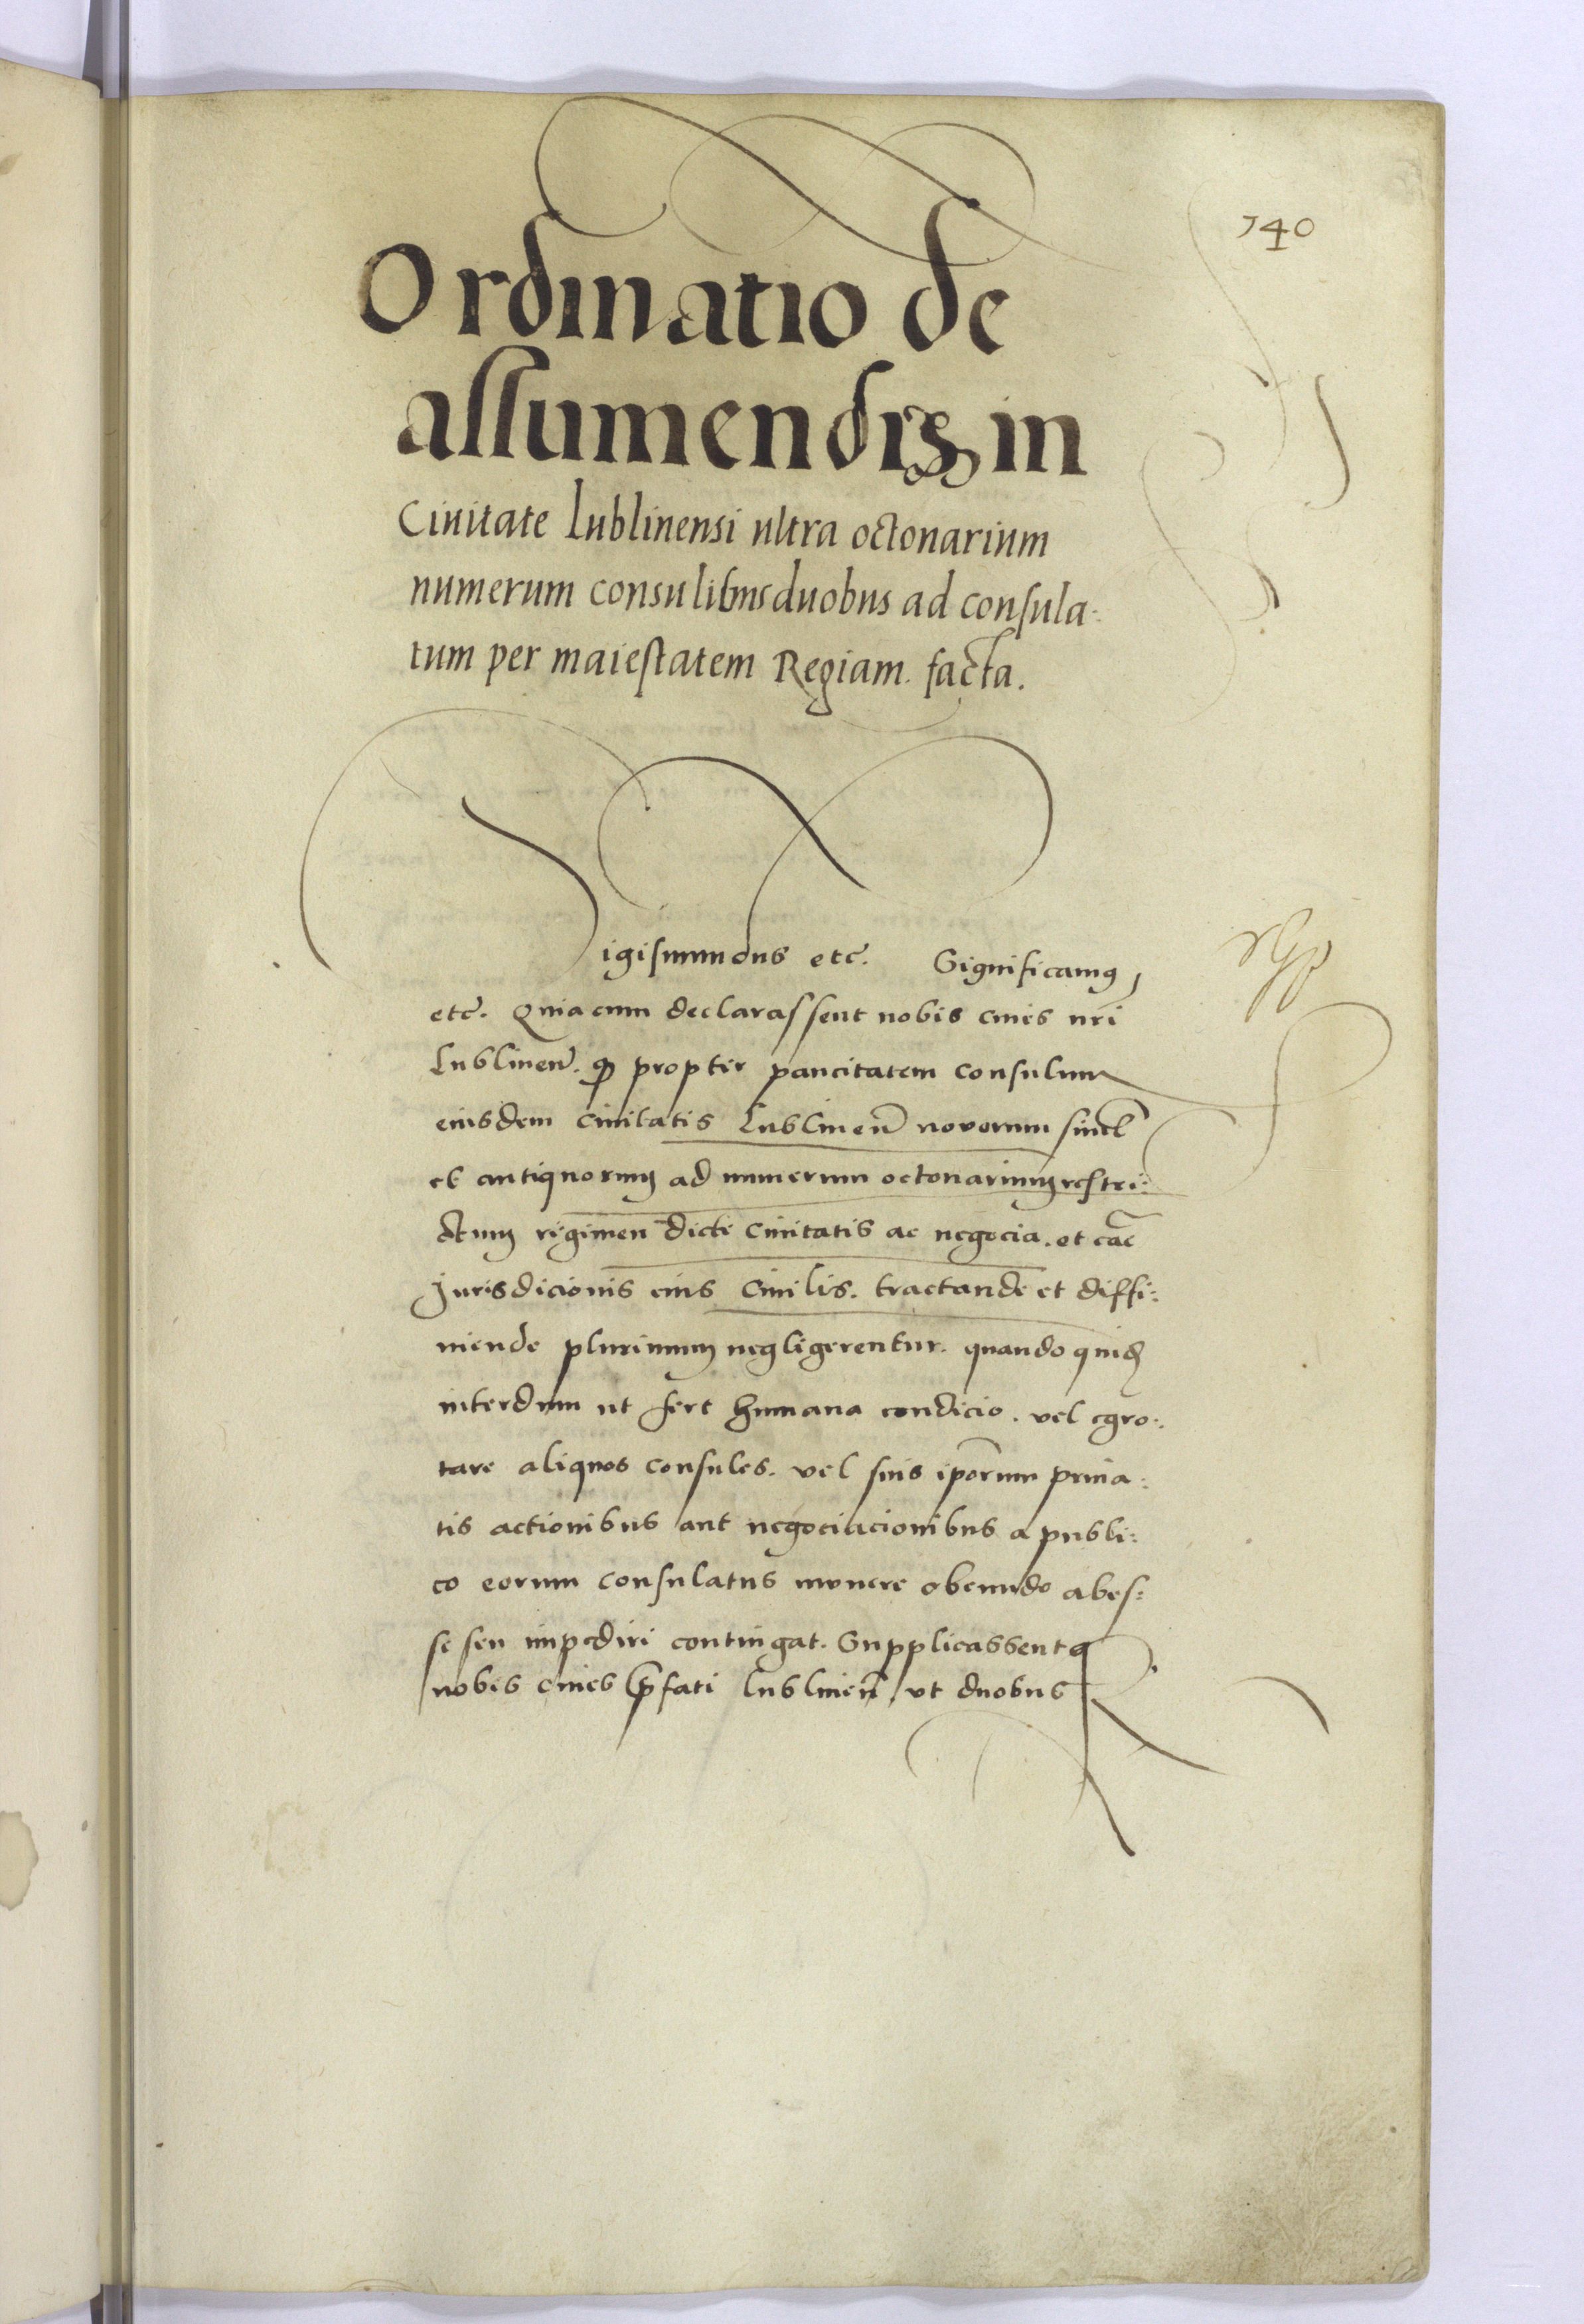 140
Ordinatio de
assumendis in
Ciuitate Lublinensi ultra octonarium
numerum consulibus duobus ad consula-
tum per maiestatem Regiam. facta.
Sigismundus etc. Significamus
etc. Quia cum declarassent nobis ciues nri
Lublinen. quod propter paucitatem consulum
eiusdem ciuitatis Lublinen nouorum simul
et antiquorum ad numerum octonarium restri:
ctum regimen dicte ciuitatis ac negocia. et cae
Jurisdicionis eius ciuilis. tractande et diffi:
niende plurimum negligerentur. quando quidem
interdum ut fert humana condicio. vel egro:
tare aliquos consules. vel suis iporum priua:
tis actionibus aut negociacionibus a publi:
co eorum consulatus munere obeundo abes:
se seu impediri contingat. Supplicassentq
nobis ciues prefati Lublinen ut duobus